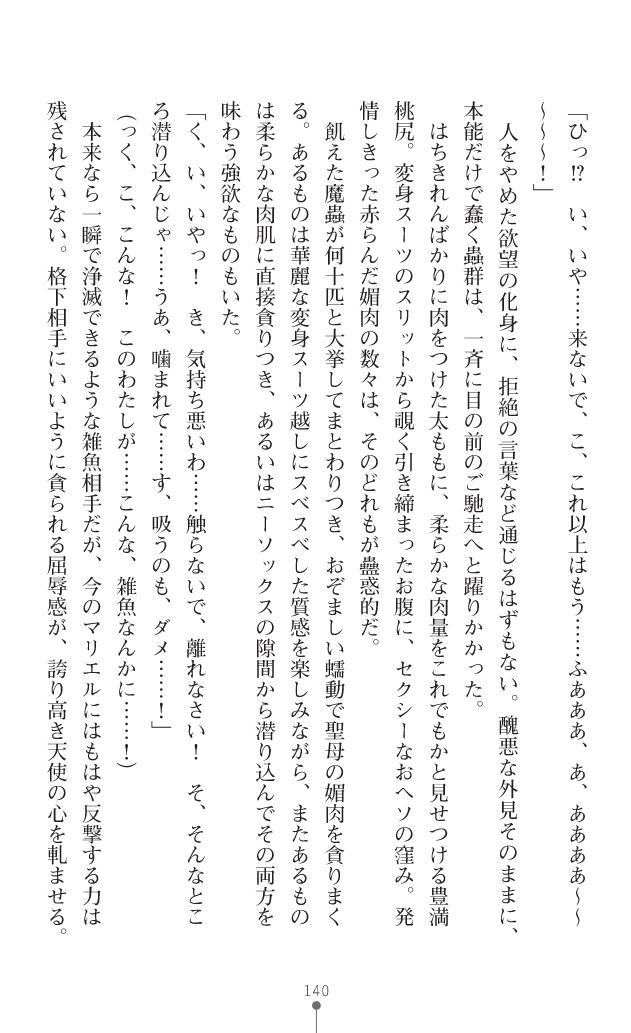 「ひっ!?　い、いや……来ないで、こ、これ以上はもう……ふあああ、あ、ああああ～～
～～～！」
　人をやめた欲望の化身に、拒絶の言葉など通じるはずもない。醜悪な外見そのままに、
本能だけで蠢く蟲群は、一斉に目の前のご馳走へと躍りかかった。
　はちきれんばかりに肉をつけた太ももに、柔らかな肉量をこれでもかと見せつける豊満
桃尻。変身スーツのスリットから覗く引き締まったお腹に、セクシーなおヘソの窪み。発
情しきった赤らんだ媚肉の数々は、そのどれもが蠱惑的だ。
　飢えた魔蟲が何十匹と大挙してまとわりつき、おぞましい蠕動で聖母の媚肉を貪りまく
る。あるものは華麗な変身スーツ越しにスベスベした質感を楽しみながら、またあるもの
は柔らかな肉肌に直接貪りつき、あるいはニーソックスの隙間から潜り込んでその両方を
味わう強欲なものもいた。
「く、い、いやっ！　き、気持ち悪いわ……触らないで、離れなさい！　そ、そんなとこ
ろ潜り込んじゃ……うあ、噛まれて……す、吸うのも、ダメ……！」
（っく、こ、こんな！　このわたしが……こんな、雑魚なんかに……！）
　本来なら一瞬で浄滅できるような雑魚相手だが、今のマリエルにはもはや反撃する力は
残されていない。格下相手にいいように貪られる屈辱感が、誇り高き天使の心を軋ませる。
140